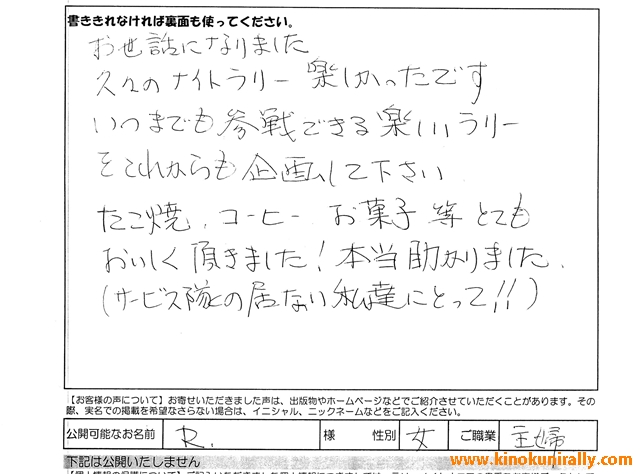 書ききれなければ裏面も使ってください。
お世話になりました
久々のナイトラリー 楽しかったです
いつまでも参戦できる楽しいラリー
をこれからも企画して下さい
たこ焼、コーヒー お菓子 等 とても
おいしく頂きました！本当助かりました.
(サービス隊との居ない私達にとって!!)
【お客様の声について】お寄せいただきました声は、出版物やホームページなどでご紹介させていただくことがあります。その
際、実名での掲載を希望なさらない場合は、イニシャル、ニックネームなどをご記入ください。
公開可能なお名前 R. 様 性別 女 ご職業 主婦
下記は公開いたしません
www.kinokunirally.com